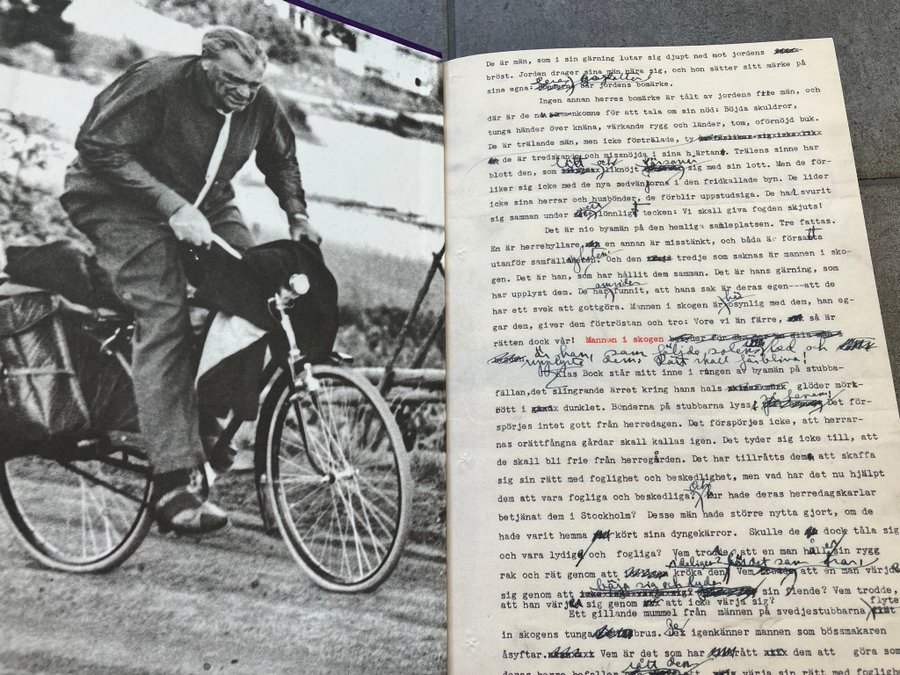 De är män, som i sin gärning lutar sig djupt ned mot jordens
bröst. Jorden drager sina män nära sig, och hon sätter sitt märke på
sina egna: bär jordens bomärke.
Ingen annan herres bomärke är tålt av jordens fria män, och
där är de nu komne för att tala om sin nöd: Böjda skuldror,
tunga händer över knäna, värkande rygg och länder, tom, oförnöjd buk.
De är trälande män, men icke förträlade, ty
de är tredskande och missnöjda i sina hjärtan. Trälens sinne har
blott den, som tött och försonar sig med sin lott. Men de för-
liker sig icke med de nya sedvänjorna i den fridkallade byn. De lider
icke sina herrar och husbönder, de förblir uppstudsiga. De ha svurit
sig samman under lönnligt tecken: Vi skall giva fogden skjuts!
Det är nio byamän på den hemliga samleplatsen. Tre fattas.
En är herrehyllare, en annan är misstänkt, och båda är försatt
utanför samfälligheten. Och den tredje som saknas är mannen i sko-
gen. Det är han, som har hållit dem samman. Det är hans gärning, som
har upplyst dem. De har funnit, att hans sak är deras egen---att de
har ett svek att gottgöra. Mannen i skogen är osynlig med dem, han eg-
gar dem, giver dem förtröstan och tro: Vore vi än färre, så är
rätten dock vår! Mannen i skogen
är han, som följde och
dem: Rätt skall förbliva!
Klas Bock står mitt inne i ringen av byamän på stubba-
fällan, det slingrande ärret kring hans hals glöder mörk-
rött i dunklet. Bönderna på stubbarna lyss: Det för-
spörjes intet gott från herredagen. Det förspörjes icke, att herrar-
nas orättfångna gårdar skall kallas igen. Det tyder sig icke till, att
de skall bli frie från herregården. Det har tillråtts dem att skaffa
sig sin rätt med foglighet och beskedlighet, men vad har det nu hjälpt
dem att vara fogliga och beskedliga? Och hur hade deras herredagskarlar
betjänat dem i Stockholm? Desse män hade större nytta gjort, om de
hade varit hemma och kört sina dyngekärror. Skulle de dock tåla sig
och vara lydiga och fogliga? Vem trodde, att en man håller sin rygg
rak och rät genom att kröka den? Vem att en man värjde
sig genom att böja sig och lyda sin fiende? Vem trodde,
att han värjde sig genom att icke värja sig?
Ett gillande mummel från männen på svedjestubbarna flyter
in skogens tunga brus. De igenkänner mannen som bössmakaren
åsyftar. Vem är det som har rått dem att göra som
deras herre befaller rätt den värja sin rätt med foglighet